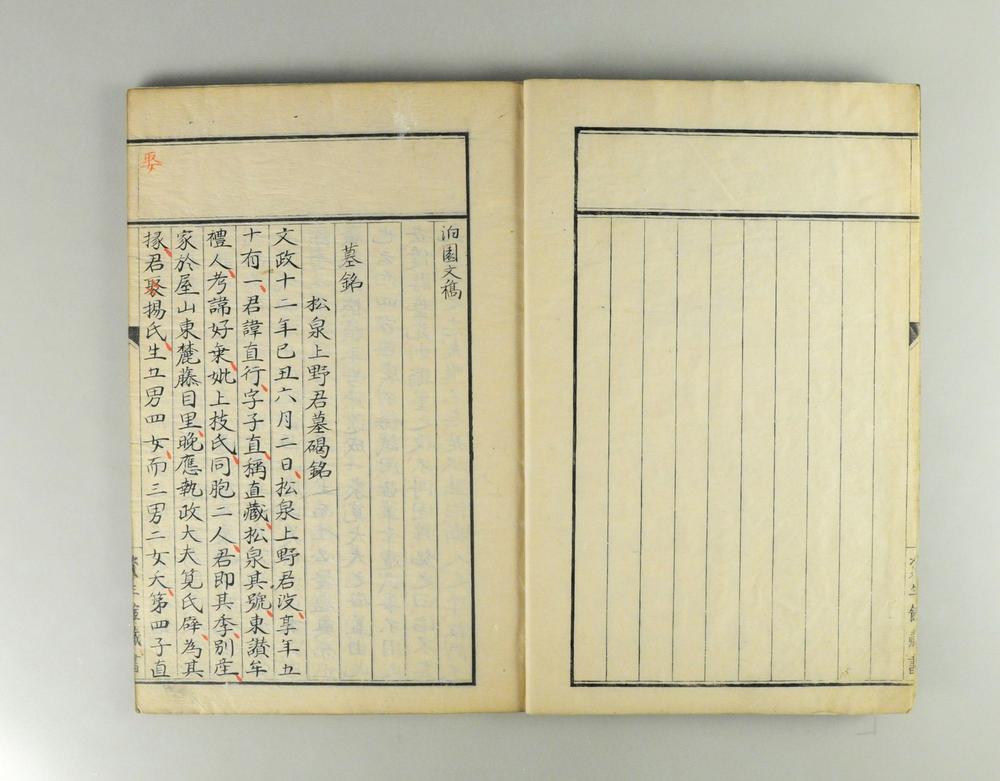 泊園文稿
墓銘
松泉上野君墓碣銘
文政十二年己丑六月二日松泉上野君没享年五
十有一君諱直行字子直稱直藏松泉其號東讃牟
禮人考諱好乗妣上枝氏同胞二人君即其季別産
家於屋山東麓藤目里晩應執政大夫筧氏辟為其
掾君聚揚氏生五男四女而三男二女夭第四子直
娶